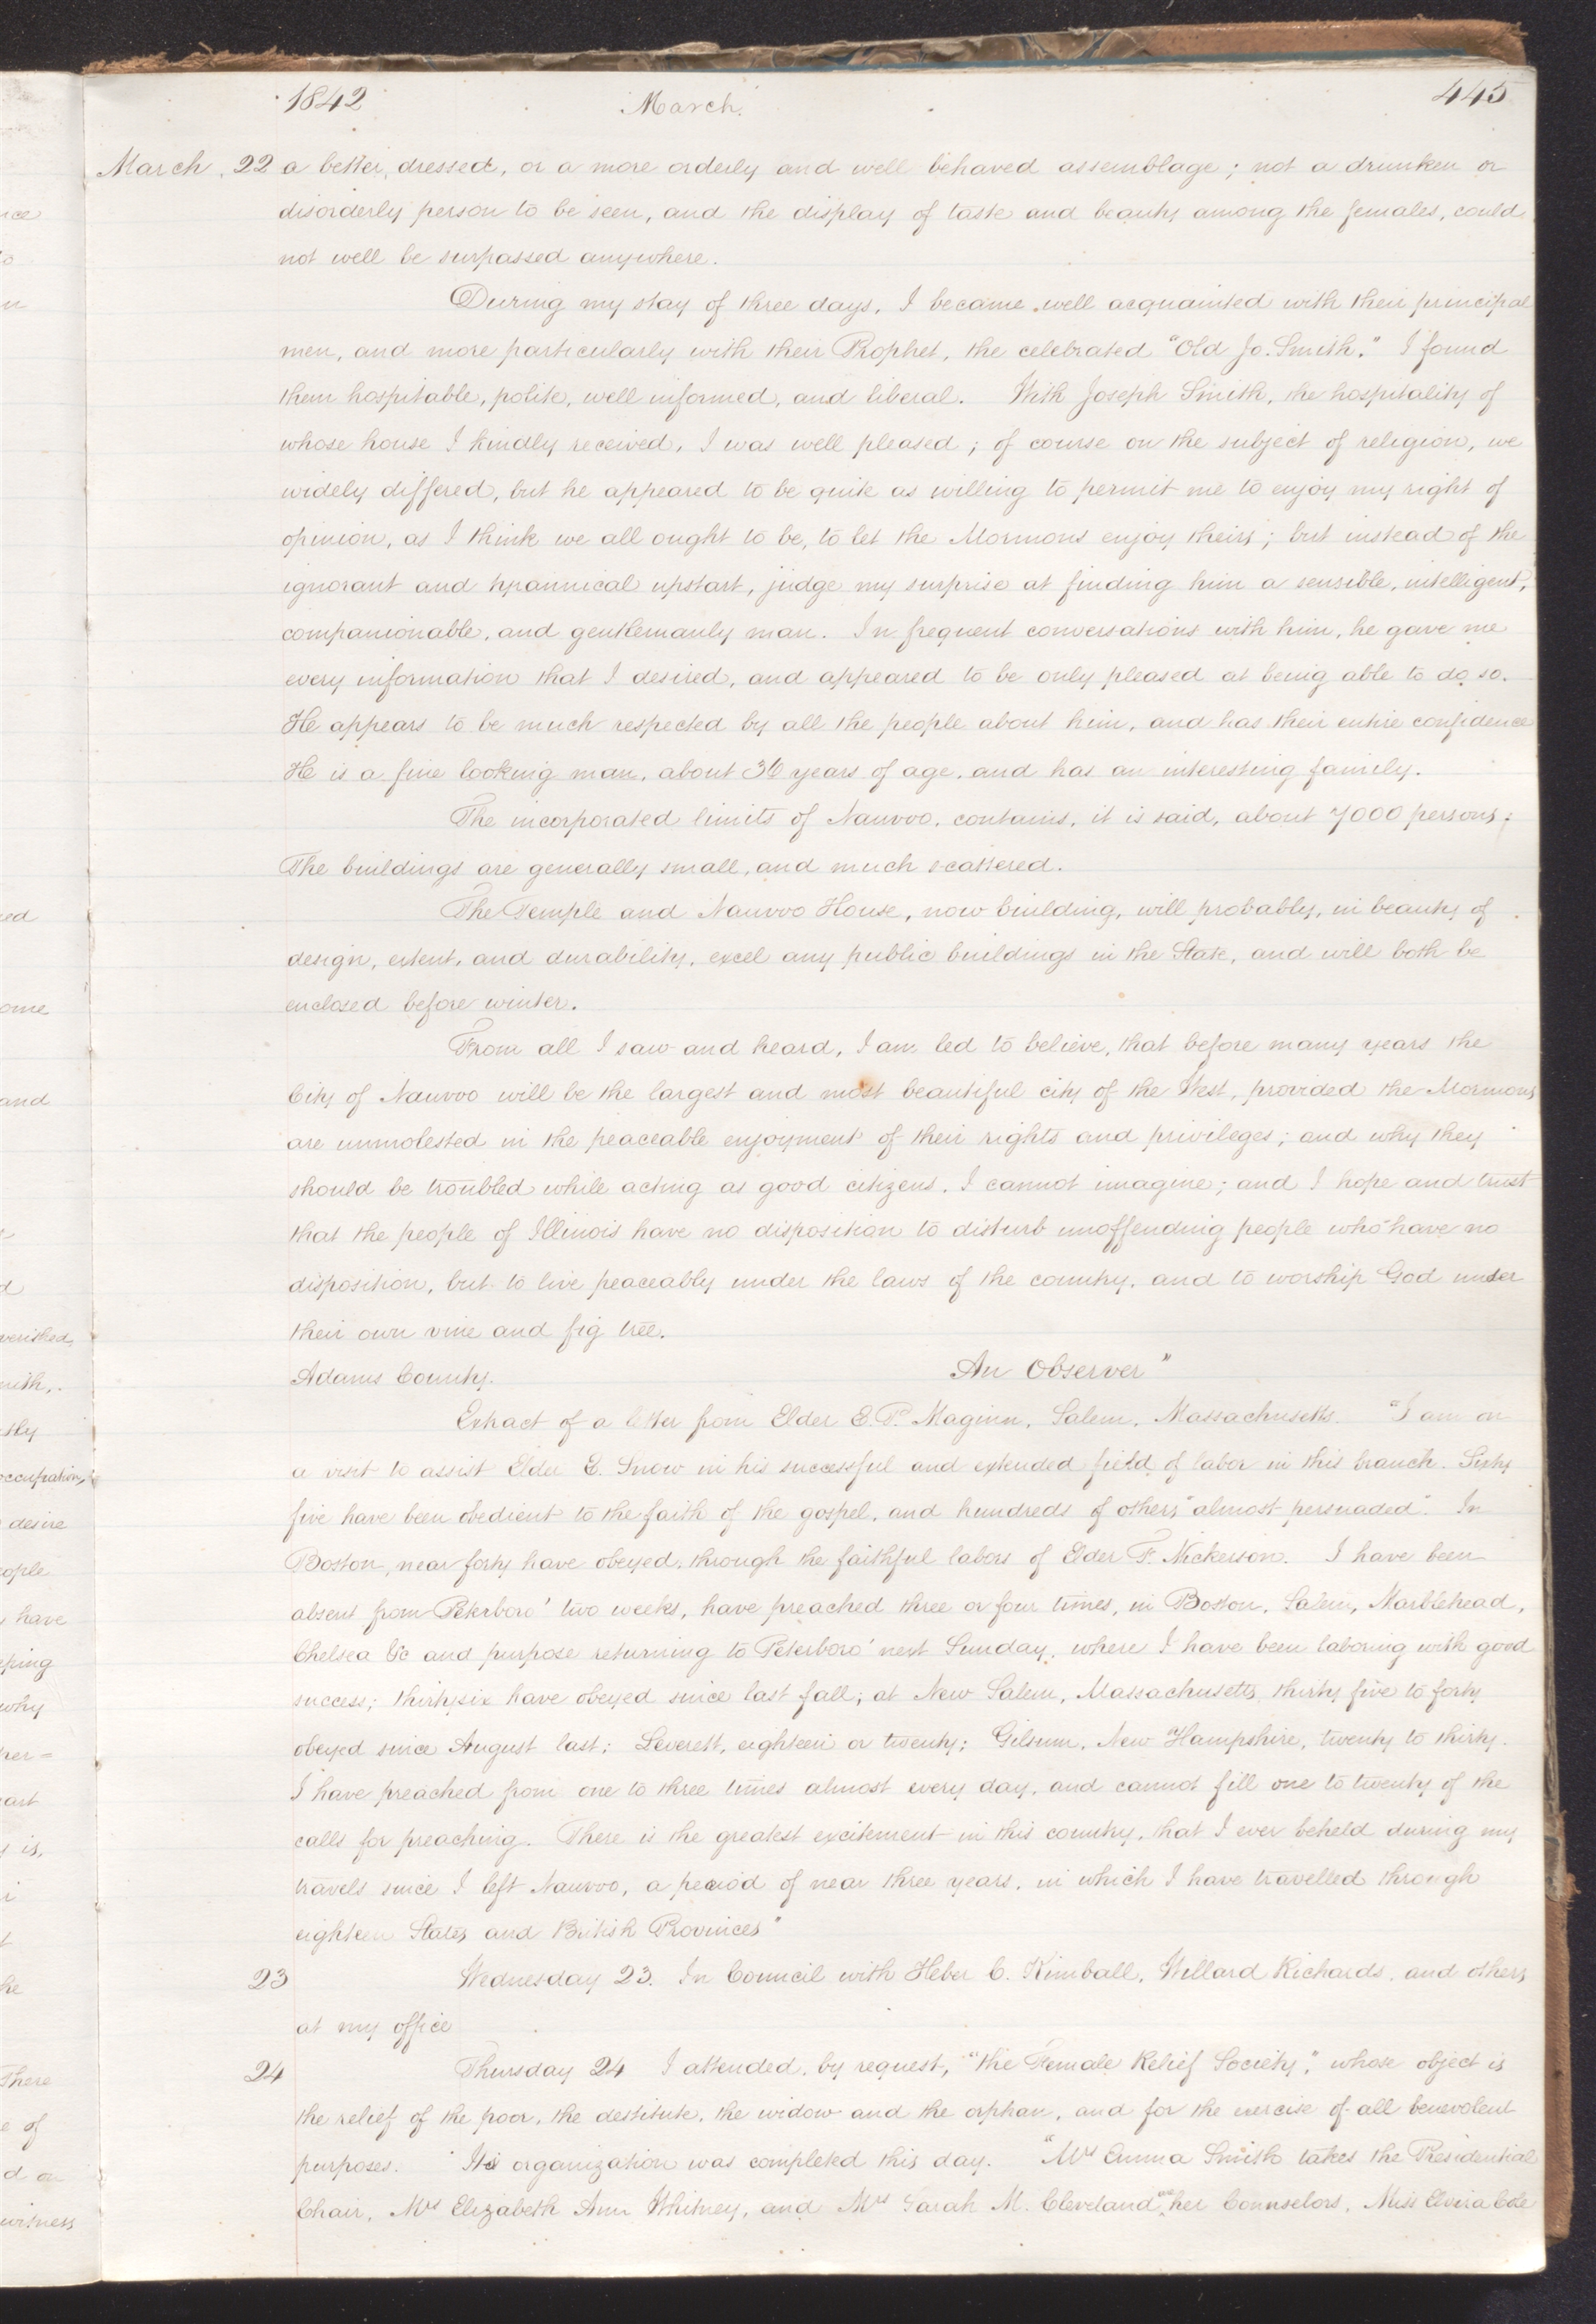 1842 March. 445
March, 22 a better, dressed, or a more orderly and well behaved assemblage; not a drunken or
disorderly person to be seen, and the display of taste and beauty among the females, could
not well be surpassed anywhere.
During my stay of three days, I became well acquainted with their principal
men, and more particularly with their Prophet, the celebrated "Old Jo. Smith." I found
them hospitable, polite, well informed, and liberal. With Joseph Smith, the hospitality of
whose house I kindly received, I was well pleased; of course on the subject of religion, we
widely differed, but he appeared to be quite as willing to permit me to enjoy my right of
opinion, as I think we all ought to be, to let the Mormons enjoy theirs; but instead of the
ignorant and tyrannical upstart, judge my surprise at finding him a sensible, intelligent,
companionable, and gentlemanly man. In frequent conversations with him, he gave me
every information that I desired, and appeared to be only pleased at being able to do so.
He appears to be much respected by all the people about him, and has their entire confidence
He is a fine looking man, about 36 years of age, and has an interesting family.
The incorporated limits of Nauvoo, contains, it is said, about 7000 persons;
The buildings are generally small, and much scattered.
The Temple and Nauvoo House, now building, will probably, in beauty of
design, extent, and durability, excel any public buildings in the State, and will both be
enclosed before winter.
From all I saw and heard, I am led to believe, that before many years the
City of Nauvoo will be the largest and most beautiful city of the West, provided the Mormons
are unmolested in the peaceable enjoyment of their rights and privileges; and why they
should be troubled while acting as good citizens, I cannot imagine; and I hope and trust
that the people of Illinois have no disposition to disturb unoffending people who have no
disposition, but to live peaceably under the laws of the country, and to worship God under
their own vine and fig tree.
Adams County. An Observer"
Extract of a letter from Elder E. P. Maginn, Salem, Massachusetts. "I am on
a visit to assist Elder E. Snow in his successful and extended field of labor in this branch. Sixty
five have been obedient to the faith of the gospel, and hundreds of others "almost persuaded". In
Boston, near forty have obeyed, through the faithful labors of Elder F. Nickerson. I have been
absent from Peterboro' two weeks, have preached three or four times, in Boston, Salem, Marblehead,
Chelsea &c and purpose returning to Peterboro' next Sunday, where I have been laboring with good
success; thirty six have obeyed since last fall; at New Salem, Massachusetts, thirty five to forty
obeyed since August last; Leverett, eighteen or twenty; Gilsum, New Hampshire, twenty to thirty.
I have preached from one to three times almost every day, and cannot fill one to twenty of the
calls for preaching. There is the greatest excitement in this country, that I ever beheld during my
travels since I left Nauvoo, a period of near three years, in which I have travelled through
eighteen States and British Provinces"
23 Wednesday 23. In Council with Heber C. Kimball, Willard Richards, and others
at my office
24 Thursday 24 I attended, by request, "the Female Relief Society," whose object is
the relief of the poor, the destitute, the widow and the orphan, and for the exercise of all benevolent
purposes. Its organization was completed this day. "Mrs Emma Smith takes the Presidential
Chair, Mrs Elizabeth Ann Whitney, and Mrs Sarah M. Cleveland" her Counselors, Miss Elvira Cole